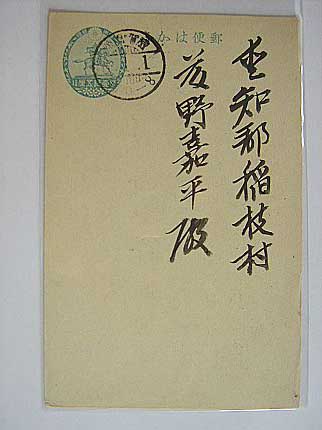 郵便はがき
愛知郡稲枝村
野嘉平殿